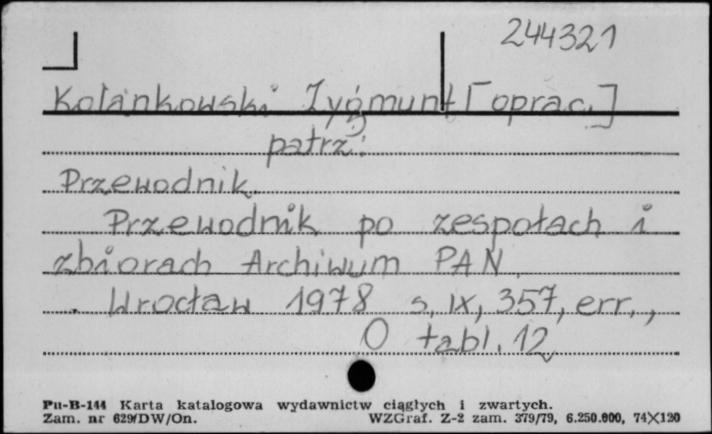 244321
Kolankowski Zygmunt [oprac.]
patrz:
Przewodnik.
Przewodnik po zespołach i
zbiorach Archiwum PAN.
Wrocław 1978 s, IX, 357, err.,
O tabl. 12
Pu-B-144 Karta katalogowa wydawnictw ciągłych i zwartych.
Zam. nr 629/DW/On. WZGraf. Z-2 zam. 379/79, 6.250.000, 74×120